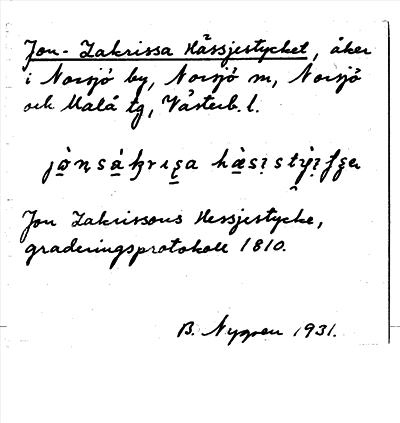 Jon-Zakrissa Hässjestycket, åker
i Norsjö by, Norsjö sn, Norsjö
och Malå tg, Västerb. l.
Jon Zakrissons Hessjestycke,
graderingsprotokoll 1810.
B. Nygren 1931.